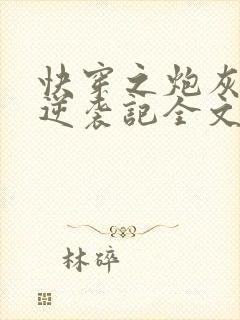 快穿之炮灰
逆袭記全文
林碎